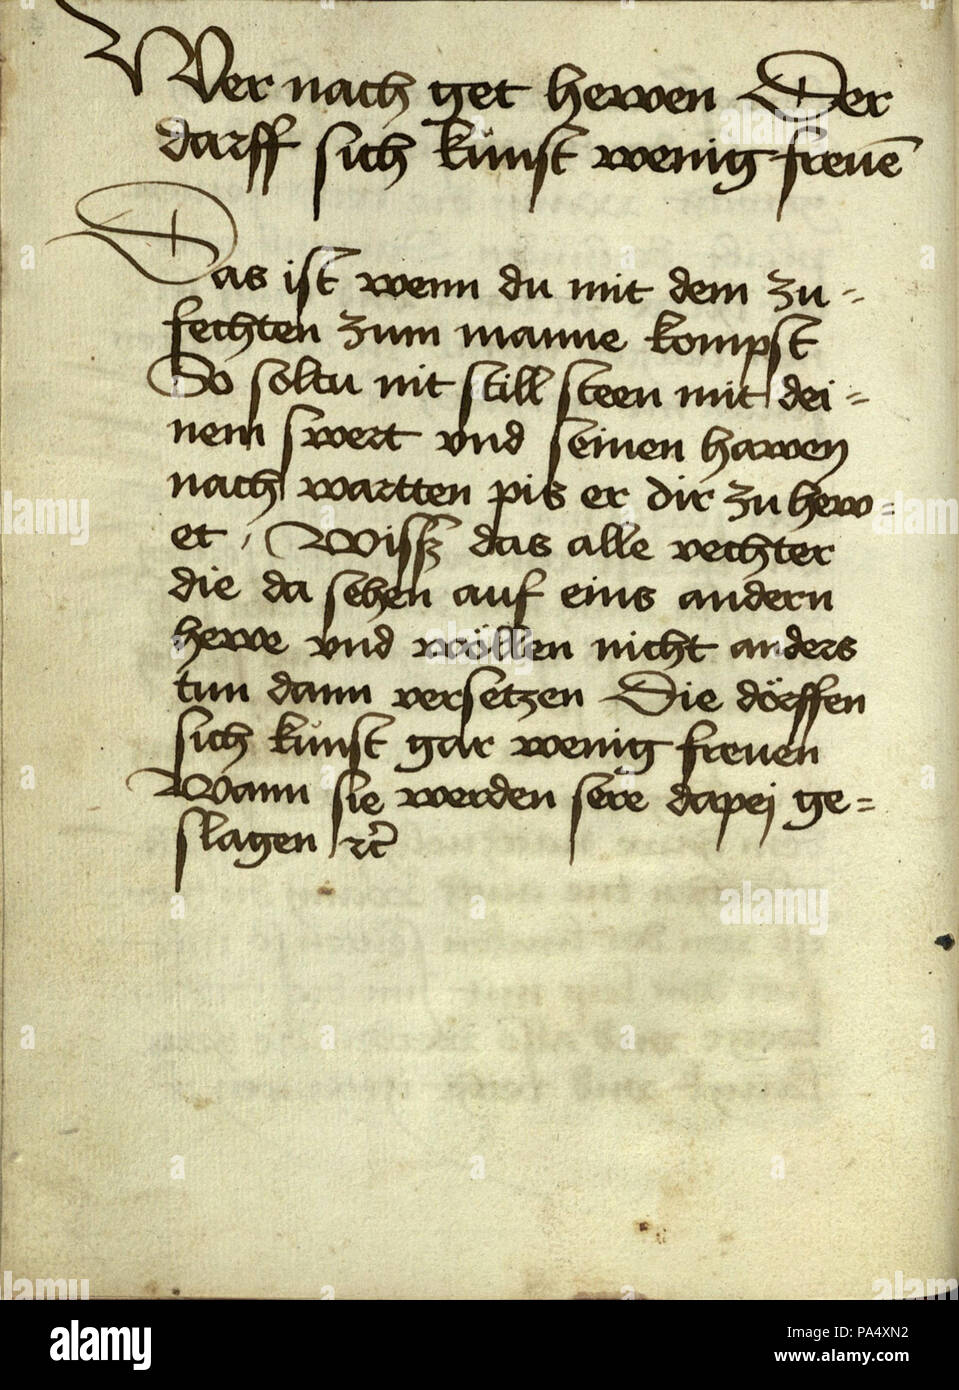 Wer nach get hewen Der
darff sich kunst wenig freuē
Das ist wenn du mit dem zu=
fechten zum manne kompst
So soltu nit still steen mit dei=
nem swert vnd seinen hawen
nach wartten pis er dir zu hew=
et / Wissz das alle vechter
die da sehen auf eins andern
hewe vnd wöllen nicht anders
tun dann versetzen Die dörffen
sich kunst gar wenig freuen
Wann sie werden sere dapej ge=
slagen ⁊c̄
alamy
Image ID: PA4XN2
www.alamy.com